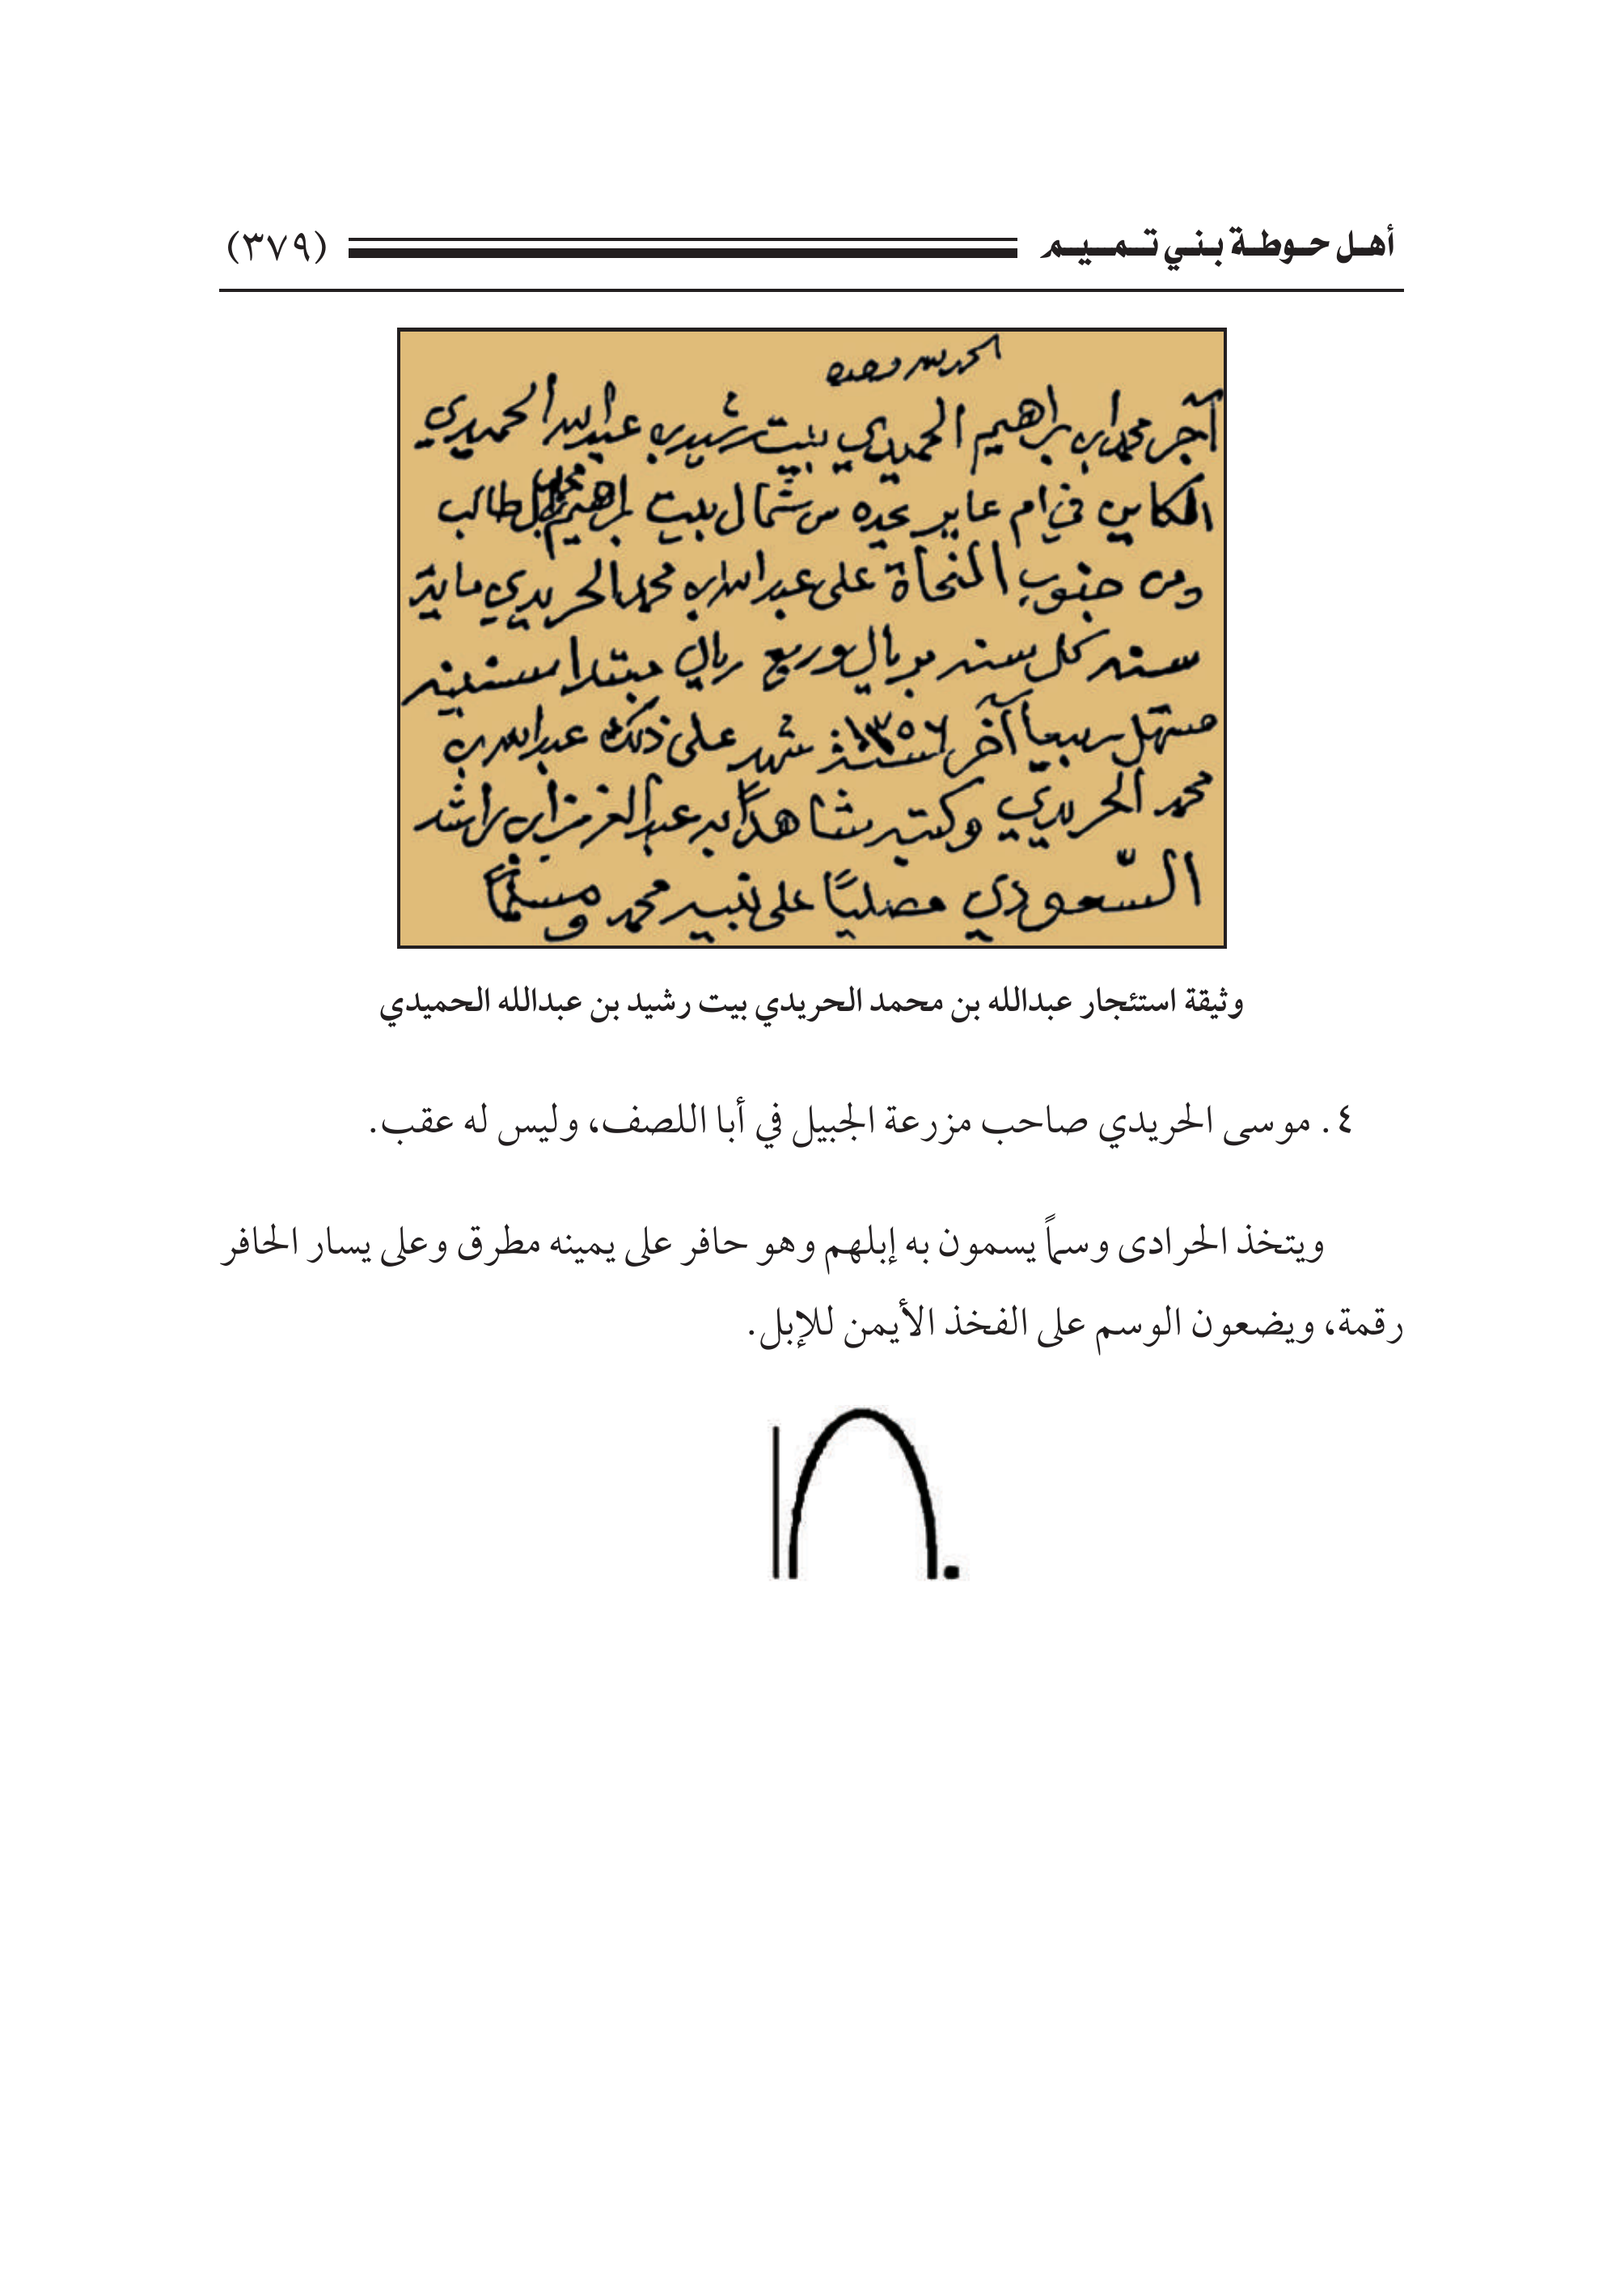 أهل حوطة بني تميم (٣٧٩)
الحمد لله وحده
آجر محمد ابن براهيم الحميدي بيت رشيد بن عبدالله الحميدي
الكاين في ام عاير يحده من شمال بيت براهيم طالب
ومن جنوب المنحاة على عبدالله بن محمد الحريدي ماية
سنه كل سنه بريال وربع ريال مبتدا
مستهل ربيع آخر ١٣٥٦ شهد على ذلك عبدالله بن
محمد الحريدي وكتبه شاهداً به عبدالعزيز ابن راشد
السعودي مصلياً على نبيه محمد ومسلماً
وثيقة استئجار عبدالله بن محمد الحريدي بيت رشيد بن عبدالله الحميدي
٤. موسى الحريدي صاحب مزرعة الجبيل في أبا اللصف، وليس له عقب.
ويتخذ الحرادى وسماً يسمون به إبلهم وهو حافر على يمينه مطرق وعلى يسار الحافر
رقمة، ويضعون الوسم على الفخذ الأيمن للإبل.